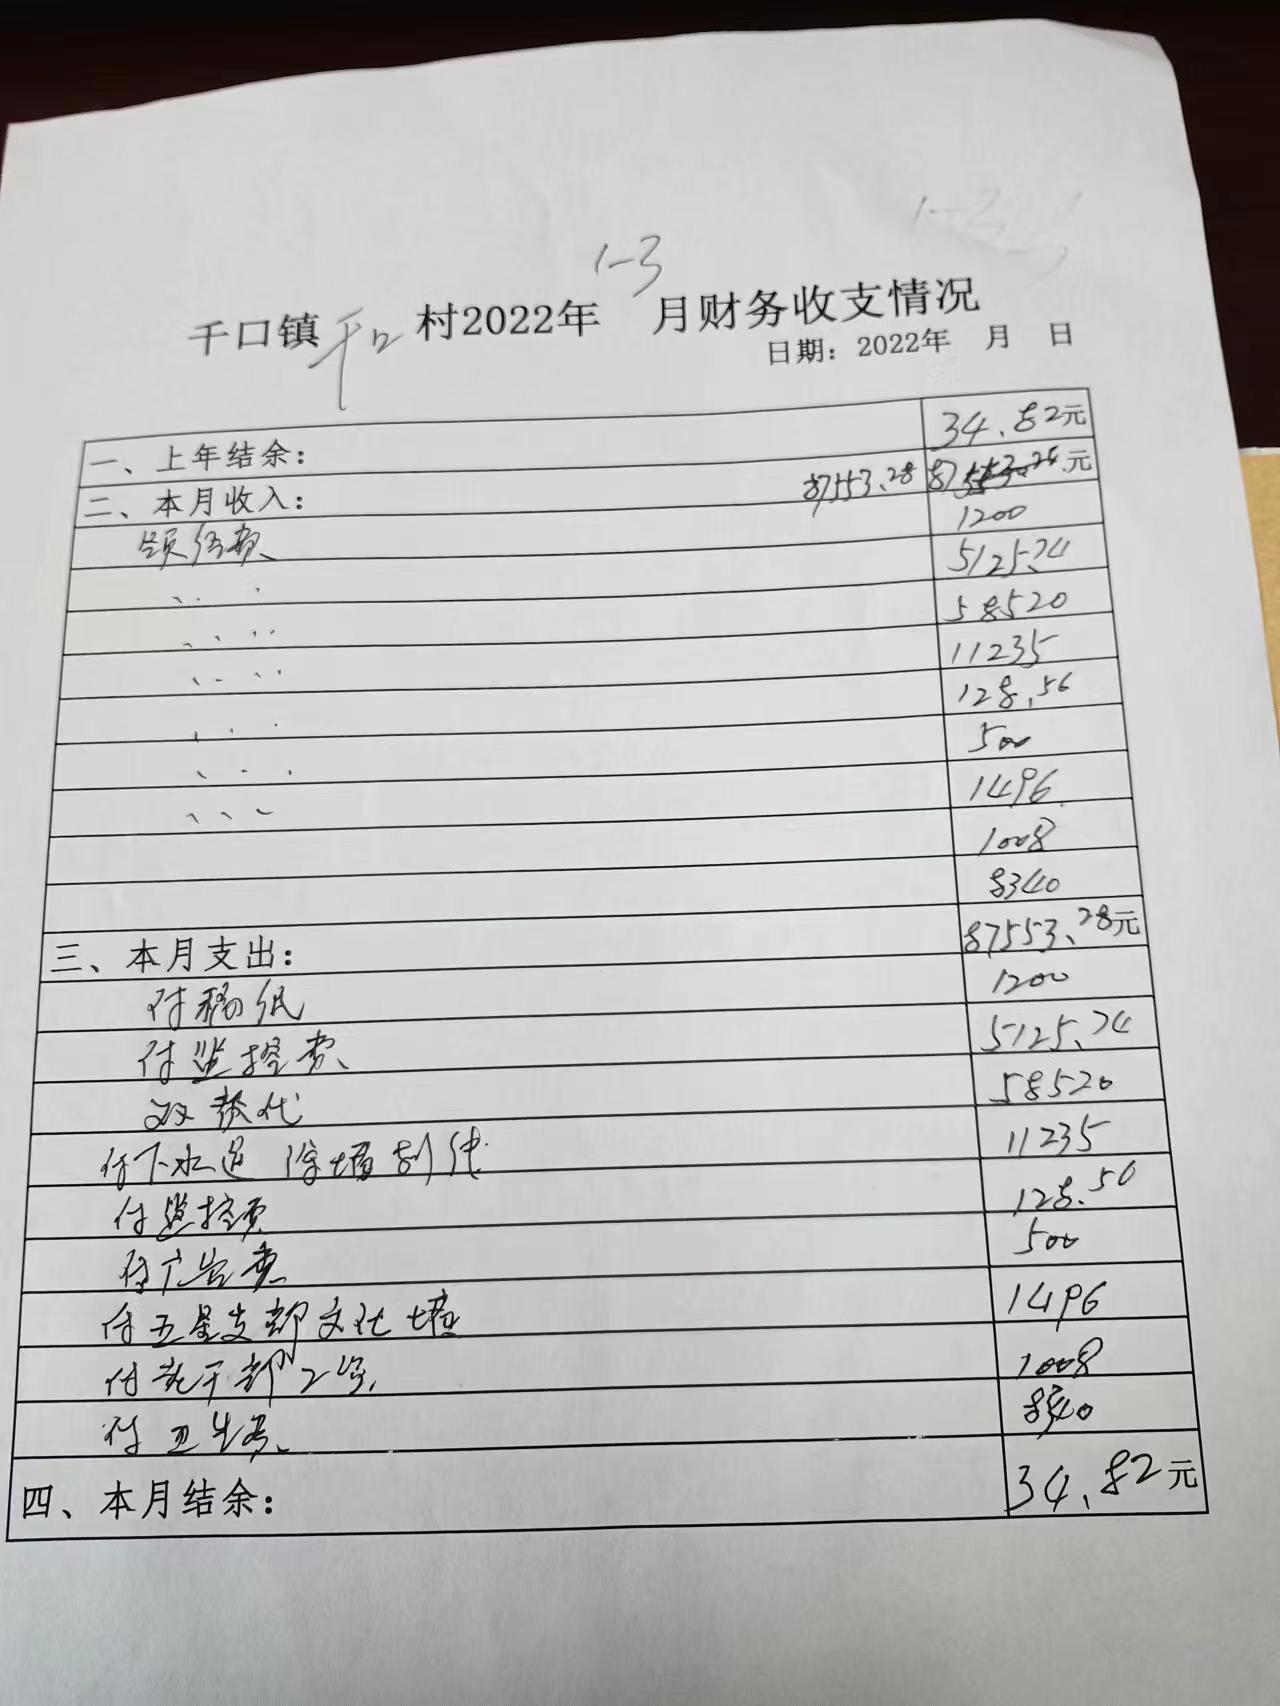 1-3
千口镇千口村2022年 月财务收支情况
日期：2022年 月 日
一、上年结余： 34.82元
二、本月收入： 87553.28 87553.28元
领经费 1200
5125.74
58520
11235
128.56
500
1496
1008
8340
三、本月支出： 87553.28元
付稿纸 1200
付监控费 5125.74
双替代 58520
付下水道 11235
付监控费 128.56
付广告费 500
付五星支部文化墙 1496
付老干部工资 1008
付卫生费 8340
四、本月结余： 34.82元